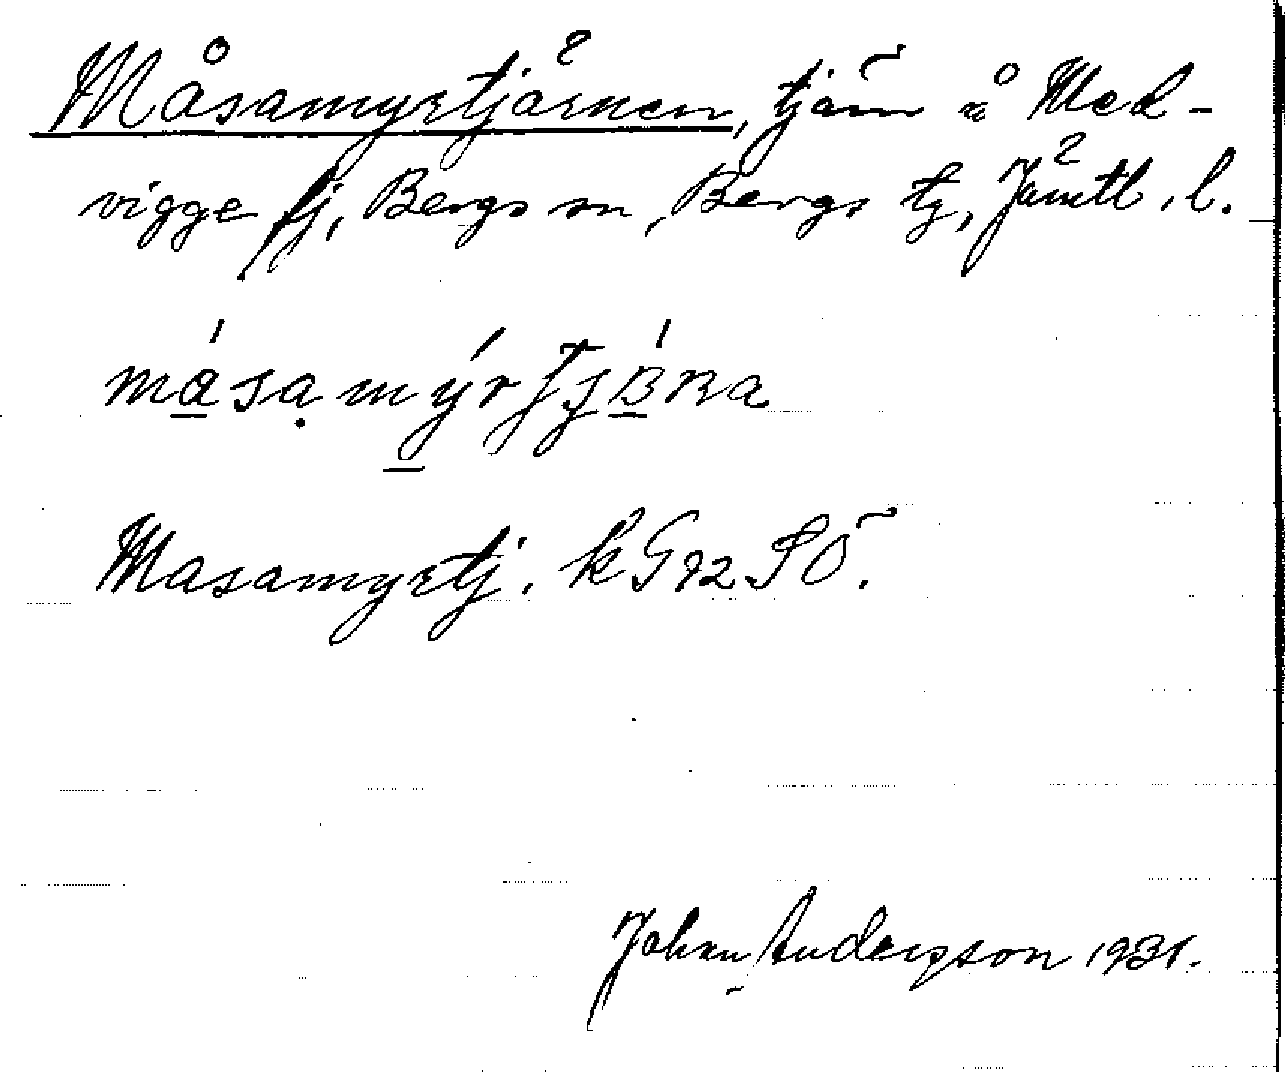 Måsamyrtjärnen, tjärn å Med-
vigge fj, Bergs sn, Bergs tg, Jämtl. l.
Masamyrtj. k G 92 SÖ.
Johan Andersson 1931.